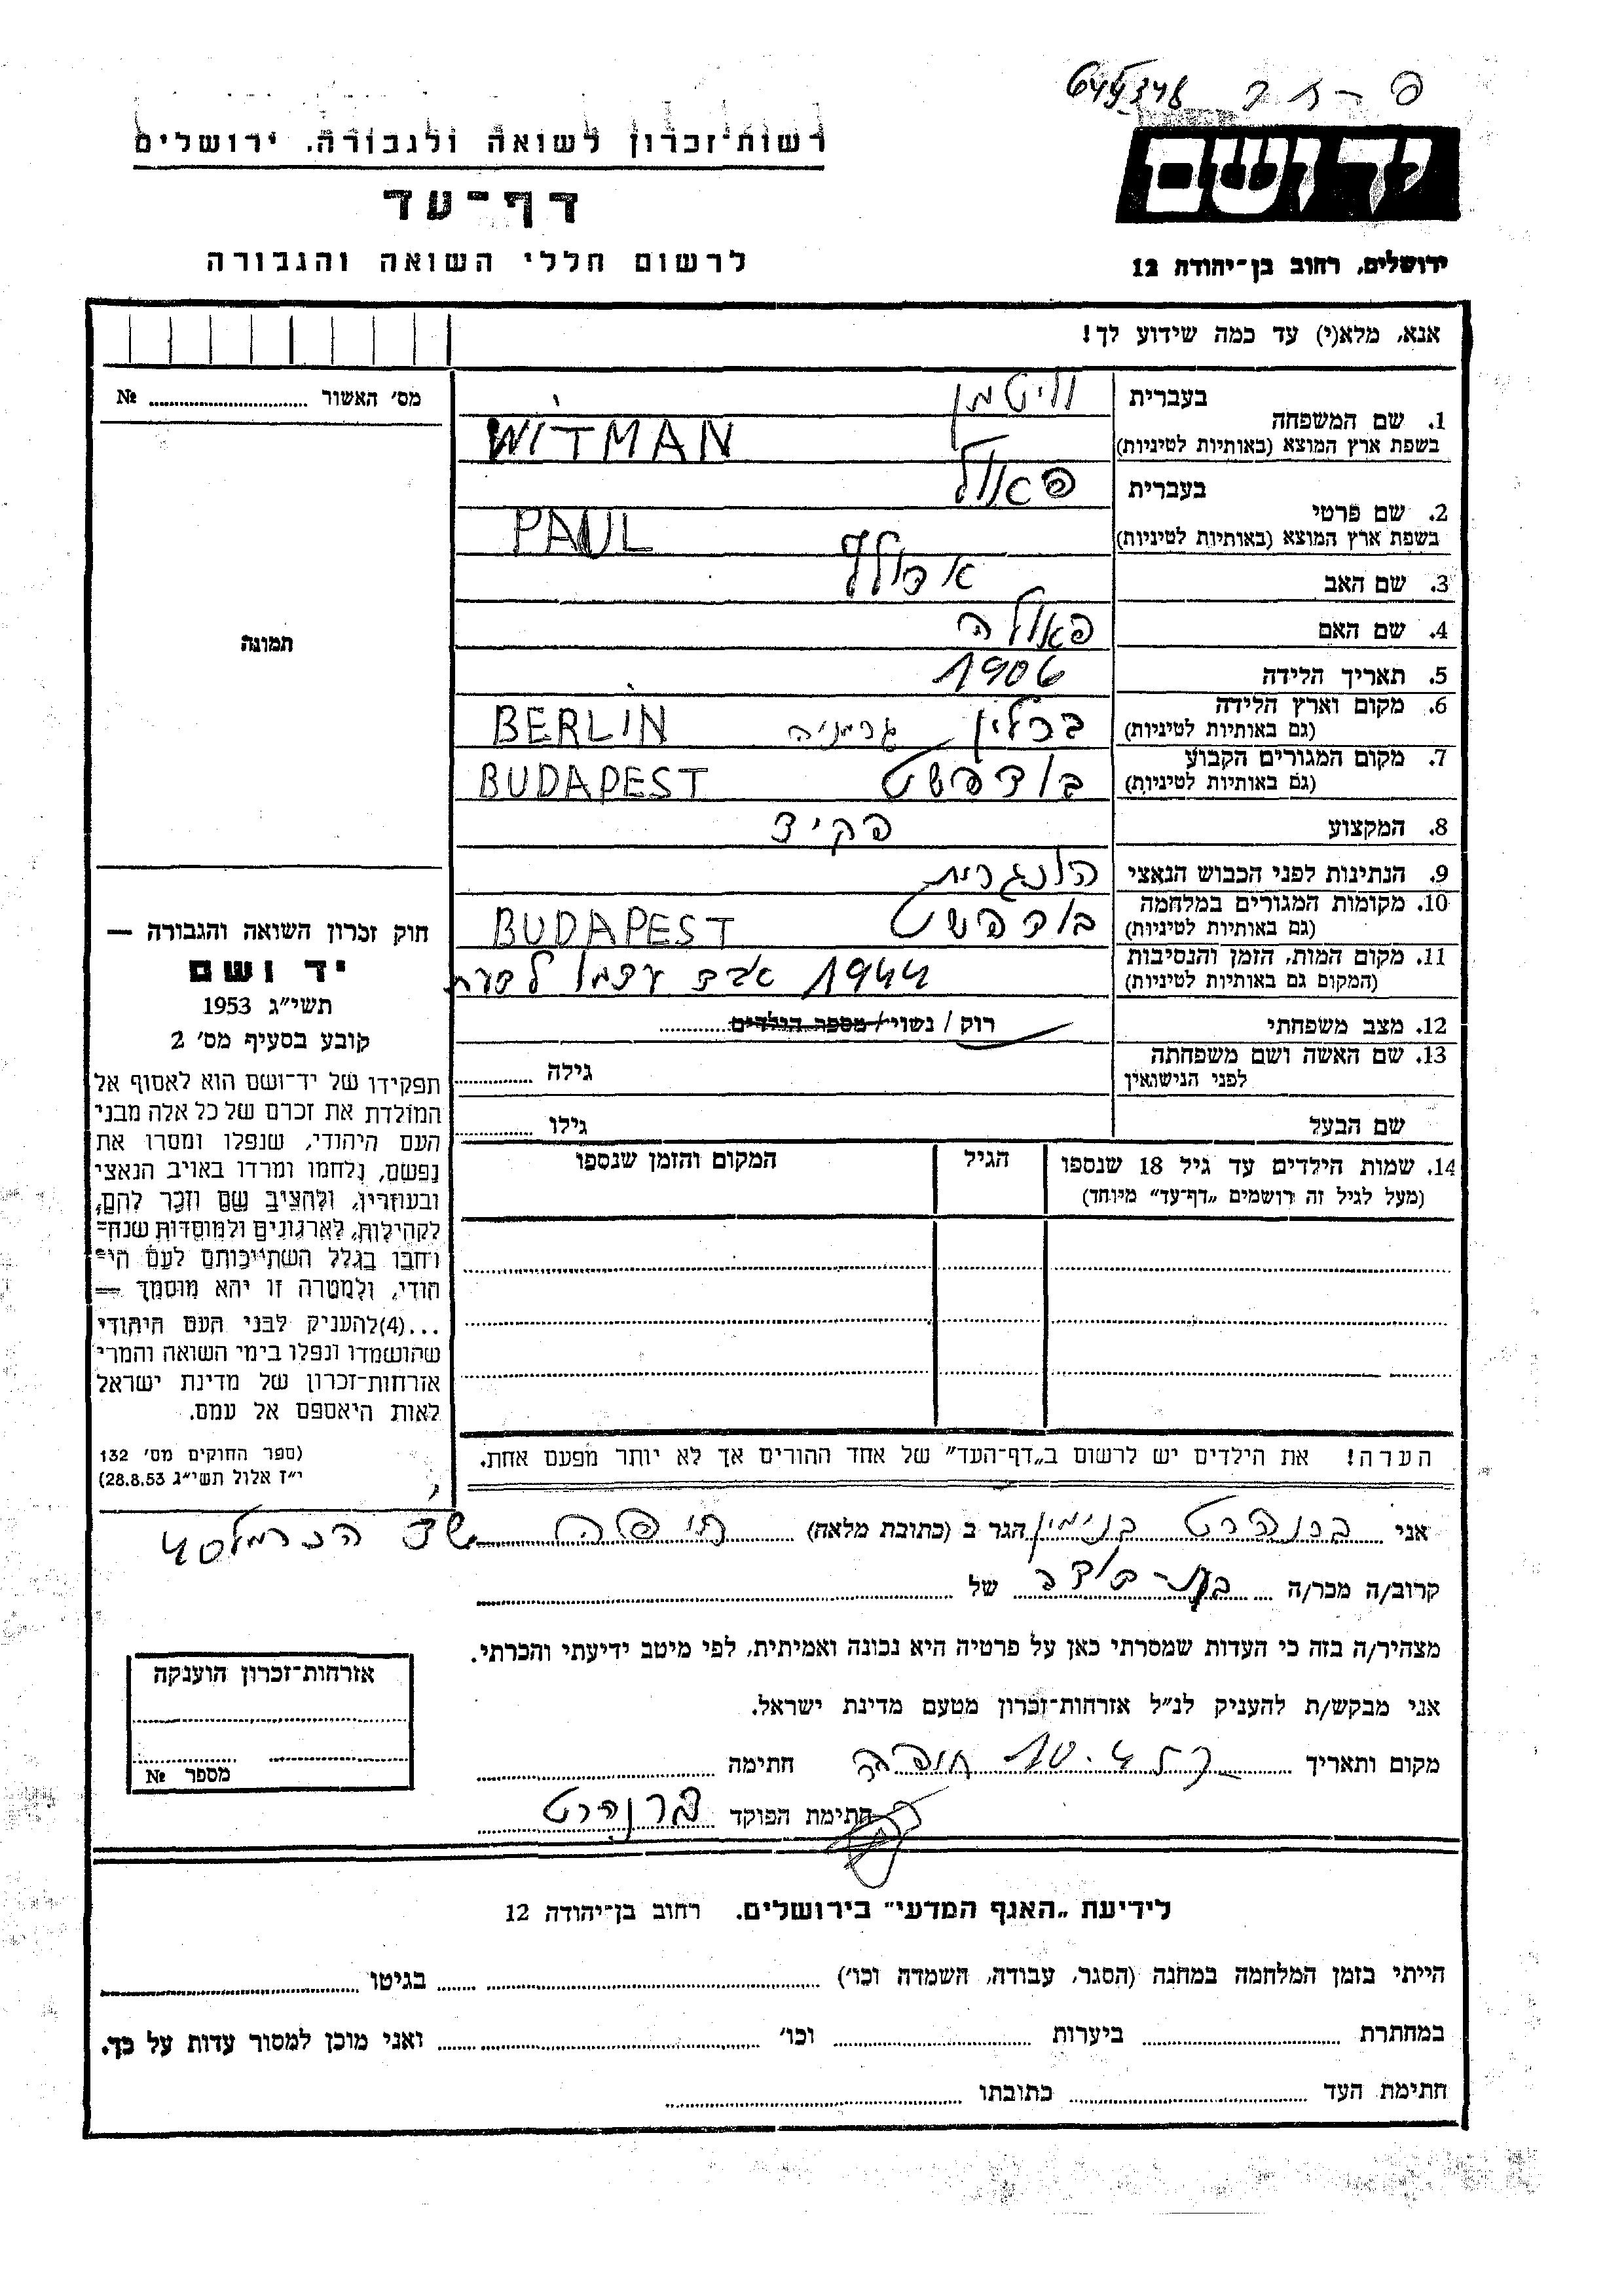 645348
יד ושם
ירושלים, רחוב בן־יהודה 12
רשות־זכרון לשואה ולגבורה, ירושלים
דף־עד
לרשום חללי השואה והגבורה
אנא, מלא(י) עד כמה שידוע לך!
מס׳ האשור № 
תמונה
חוק זכרון השואה והגבורה —
יד ושם
תשי״ג 1953
קובע בסעיף מס׳ 2
תפקידו של יד־ושם הוא לאסוף אל
המולדת את זכרם של כל אלה מבני
העם היהודי, שנפלו ומסרו את
נפשם, נלחמו ומרדו באויב הנאצי
ובעוזריו, ולהציב שם וזכר להם,
לקהילות, לארגונים ולמוסדות שנח־
רחבו בגלל השתייכותם לעם הי־
הודי, ולמטרה זו יהא מוסמך —
...(4)להעניק לבני העם היהודי
שהושמדו ונפלו בימי השואה והמרי
אזרחות־זכרון של מדינת ישראל
לאות היאספם אל עמם.
(ספר החוקים מס׳ 132
י״ז אלול תשי״ג 28.8.53)
1. שם המשפחה בעברית ויטמן
בשפת ארץ המוצא (באותיות לטיניות) WITMAN
2. שם פרטי בעברית פאול
בשפת ארץ המוצא (באותיות לטיניות) PAUL
3. שם האב אדולף
4. שם האם פאולה
5. תאריך הלידה 1906
6. מקום וארץ הלידה (גם באותיות לטיניות) ברלין גרמניה BERLIN
7. מקום המגורים הקבוע (גם באותיות לטיניות) בודפשט BUDAPEST
8. המקצוע פקיד
9. הנתינות לפני הכבוש הנאצי הונגרית
10. מקומות המגורים במלחמה (גם באותיות לטיניות) בודפשט BUDAPEST
11. מקום המות, הזמן והנסיבות (המקום גם באותיות לטיניות) 1944 אבד עצמו לדעת
12. מצב משפחתי רוק / נשוי / מספר הילדים
13. שם האשה ושם משפחתה לפני הנישואין גילה
שם הבעל גילו
14. שמות הילדים עד גיל 18 שנספו הגיל המקום והזמן שנספו
(מעל לגיל זה רושמים „דף־עד״ מיוחד)
הערה! את הילדים יש לרשום ב„דף־העד״ של אחד ההורים אך לא יותר מפעם אחת.
אני ברנהרט בנימין הגר ב (כתובת מלאה) חיפה שד הכרמל 40
קרוב/ה מכר/ה בן-דוד של
מצהיר/ה בזה כי העדות שמסרתי כאן על פרטיה היא נכונה ואמיתית, לפי מיטב ידיעתי והכרתי.
אני מבקש/ת להעניק לנ״ל אזרחות־זכרון מטעם מדינת ישראל.
מקום ותאריך חיפה 10.4 חתימה
חתימת הפוקד ברנהרט
אזרחות־זכרון הוענקה
מספר №
לידיעת „האגף המדעי״ בירושלים. רחוב בן־יהודה 12
הייתי בזמן המלחמה במחנה (הסגר, עבודה, השמדה וכו׳) בגיטו
במחתרת ביערות וכו׳ ואני מוכן למסור עדות על כך.
חתימת העד כתובתו